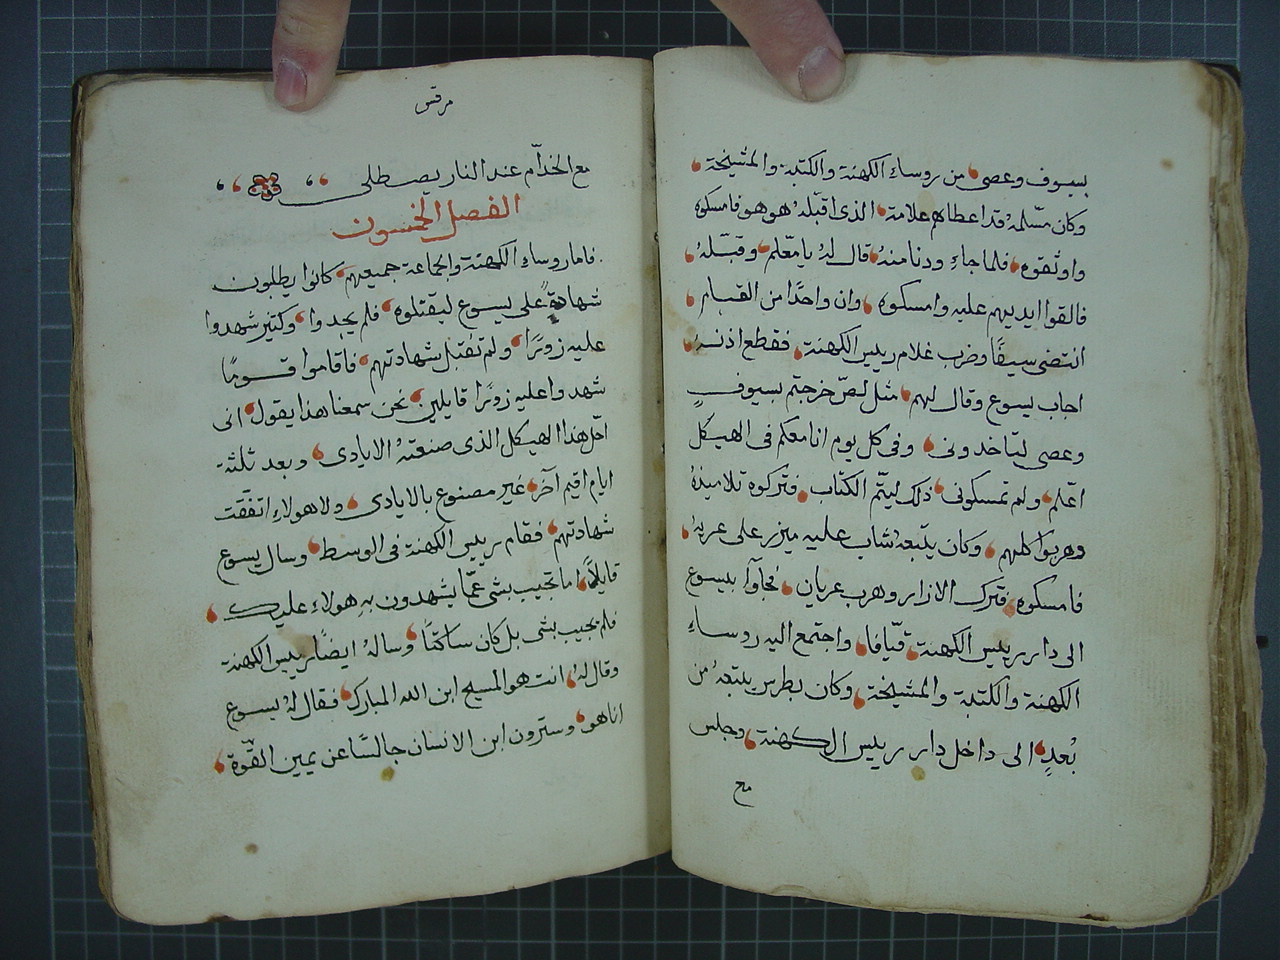 بسيوف وعصي، من روساء الكهنة والكتبة والمشيخة،
وكان مسّلمهُ قد اعطاهم علامة، الذى اقبّلهُ هو هو فامسكوه
واوثقوه، فلما جاء ودنا منهُ، قال لهُ يا معّلم، وقبّلهُ،
فالقوا ايديهم عليه وامسكوه، وان واحدًا من القيام،
انتضى سيفًا وضرب غلام رييس الكهنة، فقطع اذنهُ،
اجاب يسوع وقال لهم، مثل لصّ خرجتم بسيوفٍ
وعصي لتاخذونى، وفى كل يوم انا معكم فى الهيكل
اعّلم، ولم تمسكونى، ذلك ليتّم الكتاب، فتركوه تلاميذهُ
وهربوا كلهم، وكان يتبعهُ شاب عليه ميزر على عريهُ،
فامسكوه، فترك الازار وهرب عريان، فجآوا بيسوع
الى دار رييس الكهنة، قيّافا، واجتمع اليه روساء
الكهنة والكتبة والمشيخة، وكان بطرس يتبعهُ من
بُعدٍ، الى داخل دار رييس الكهنة، وجلس
مع
مرقس
مع الخدّام عند النار يصطلى
الفصل الخمسون
فاما روساء الكهنة والجماعة جميعهم، كانوا يطلبون
شهادة على يسوع ليقتلوه، فلم يجدوا، وكثير شهدوا
عليه زورًا، ولم تقبل شهادتهم، فاقاموا قومًا
شهدوا عليه زورًا قايلين، نحن سمعنا هذا يقول، انى
احّل هذا الهيكل الذى صنعتهُ الايادى، وبعد ثلثة
ايام اقيم آخر، غير مصنوع بالايادى، ولا هولاء اتفقت
شهادتهم، فقام رييس الكهنة فى الوسط، وسال يسوع
قايلًا، اما تجيب بشى عمّا يشهدون بهِ هولاء عليك،
فلم يجيب بشى بل كان ساكتًا، وسالهُ ايضًا رييس الكهنة
وقال لهُ، انت هو المسيح ابن الله المبارك، فقال لهُ يسوع
انا هو، وسترون ابن الانسان جالسًا عن يمين القّوة،